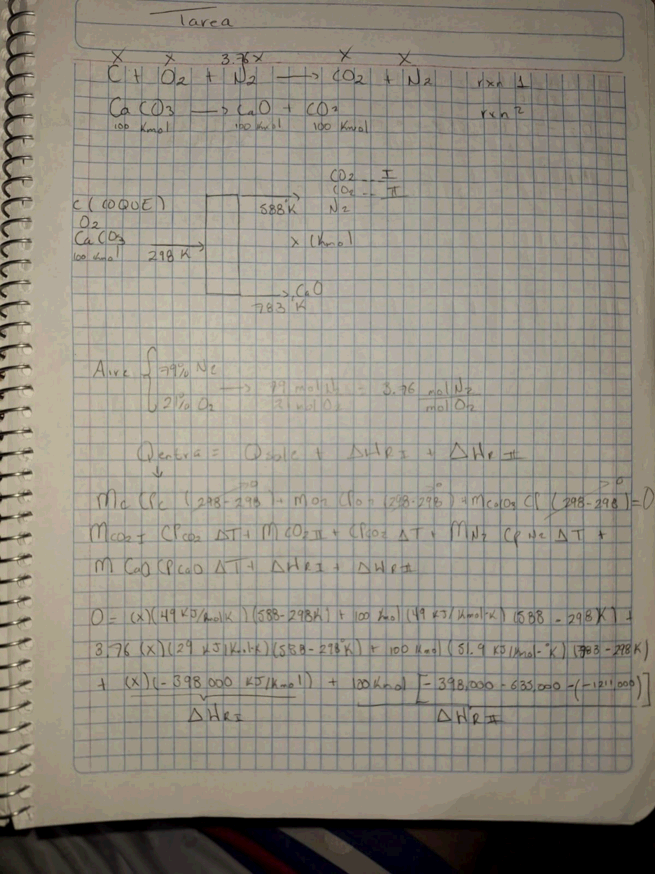 Tarea
X X 3.76x X X
C + O2 + N2 → CO2 + N2 rxn 1
CaCO3 → CaO + CO2 rxn 2
100 Kmol 100 Kmol 100 Kmol
CO2 -- I
CO2 -- II
C (COQUE) 588°K N2
O2
CaCO3 x (Kmol)
100 Kmol 298 K
CaO
783 °K
Aire { 79% N2
→ 79 mol N2 = 3.76 mol N2
21% O2 21 mol O2 mol O2
Qentra = Qsale + ΔHRI + ΔHrII
↓ →0 →0 →0
Mc CPc (298-298) + mO2 CPO2 (298-298) + mCaCO3 CP (298-298) = 0
MCO2I CPCO2 ΔT + MCO2II + CPCO2 ΔT + MN2 CPN2 ΔT +
M CaO CPCaO ΔT + ΔHRI + ΔHRII
0 = (x)(49 KJ/KmolK)(588-298K) + 100 Kmol (49 KJ/Kmol-K)(588 - 298K) +
3.76 (x)(29 KJ/Kmol-K)(588-298°K) + 100 Kmol (51.9 KJ/Kmol-°K) (783-298K)
+ (x)(-398 000 KJ/Kmol) + 100 Kmol [-398,000 -635,000 -(-1211,000)]
ΔHRI ΔHRII